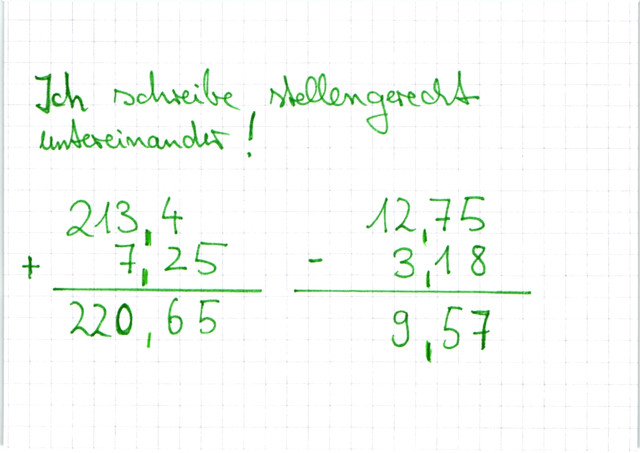 Ich schreibe stellengerecht
untereinander!
213,4
+ 7,25
220,65
12,75
- 3,18
9,57